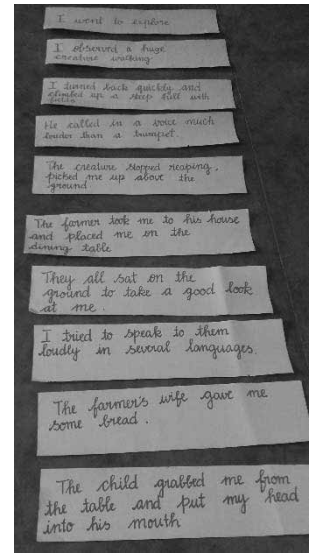 I went to explore
I observed a huge
creature walking
I turned back quickly and
climbed up a steep hill with
He called in a voice much
louder than a trumpet.
The creature stopped reaping,
picked me up above the
ground
The farmer took me to his house
and placed me on the
dining table
They all sat on the
ground to take a good look
at me.
I tried to speak to them
loudly in several languages
The farmer's wife gave me
some bread.
The child grabbed me from
the table and put my head
into his mouth